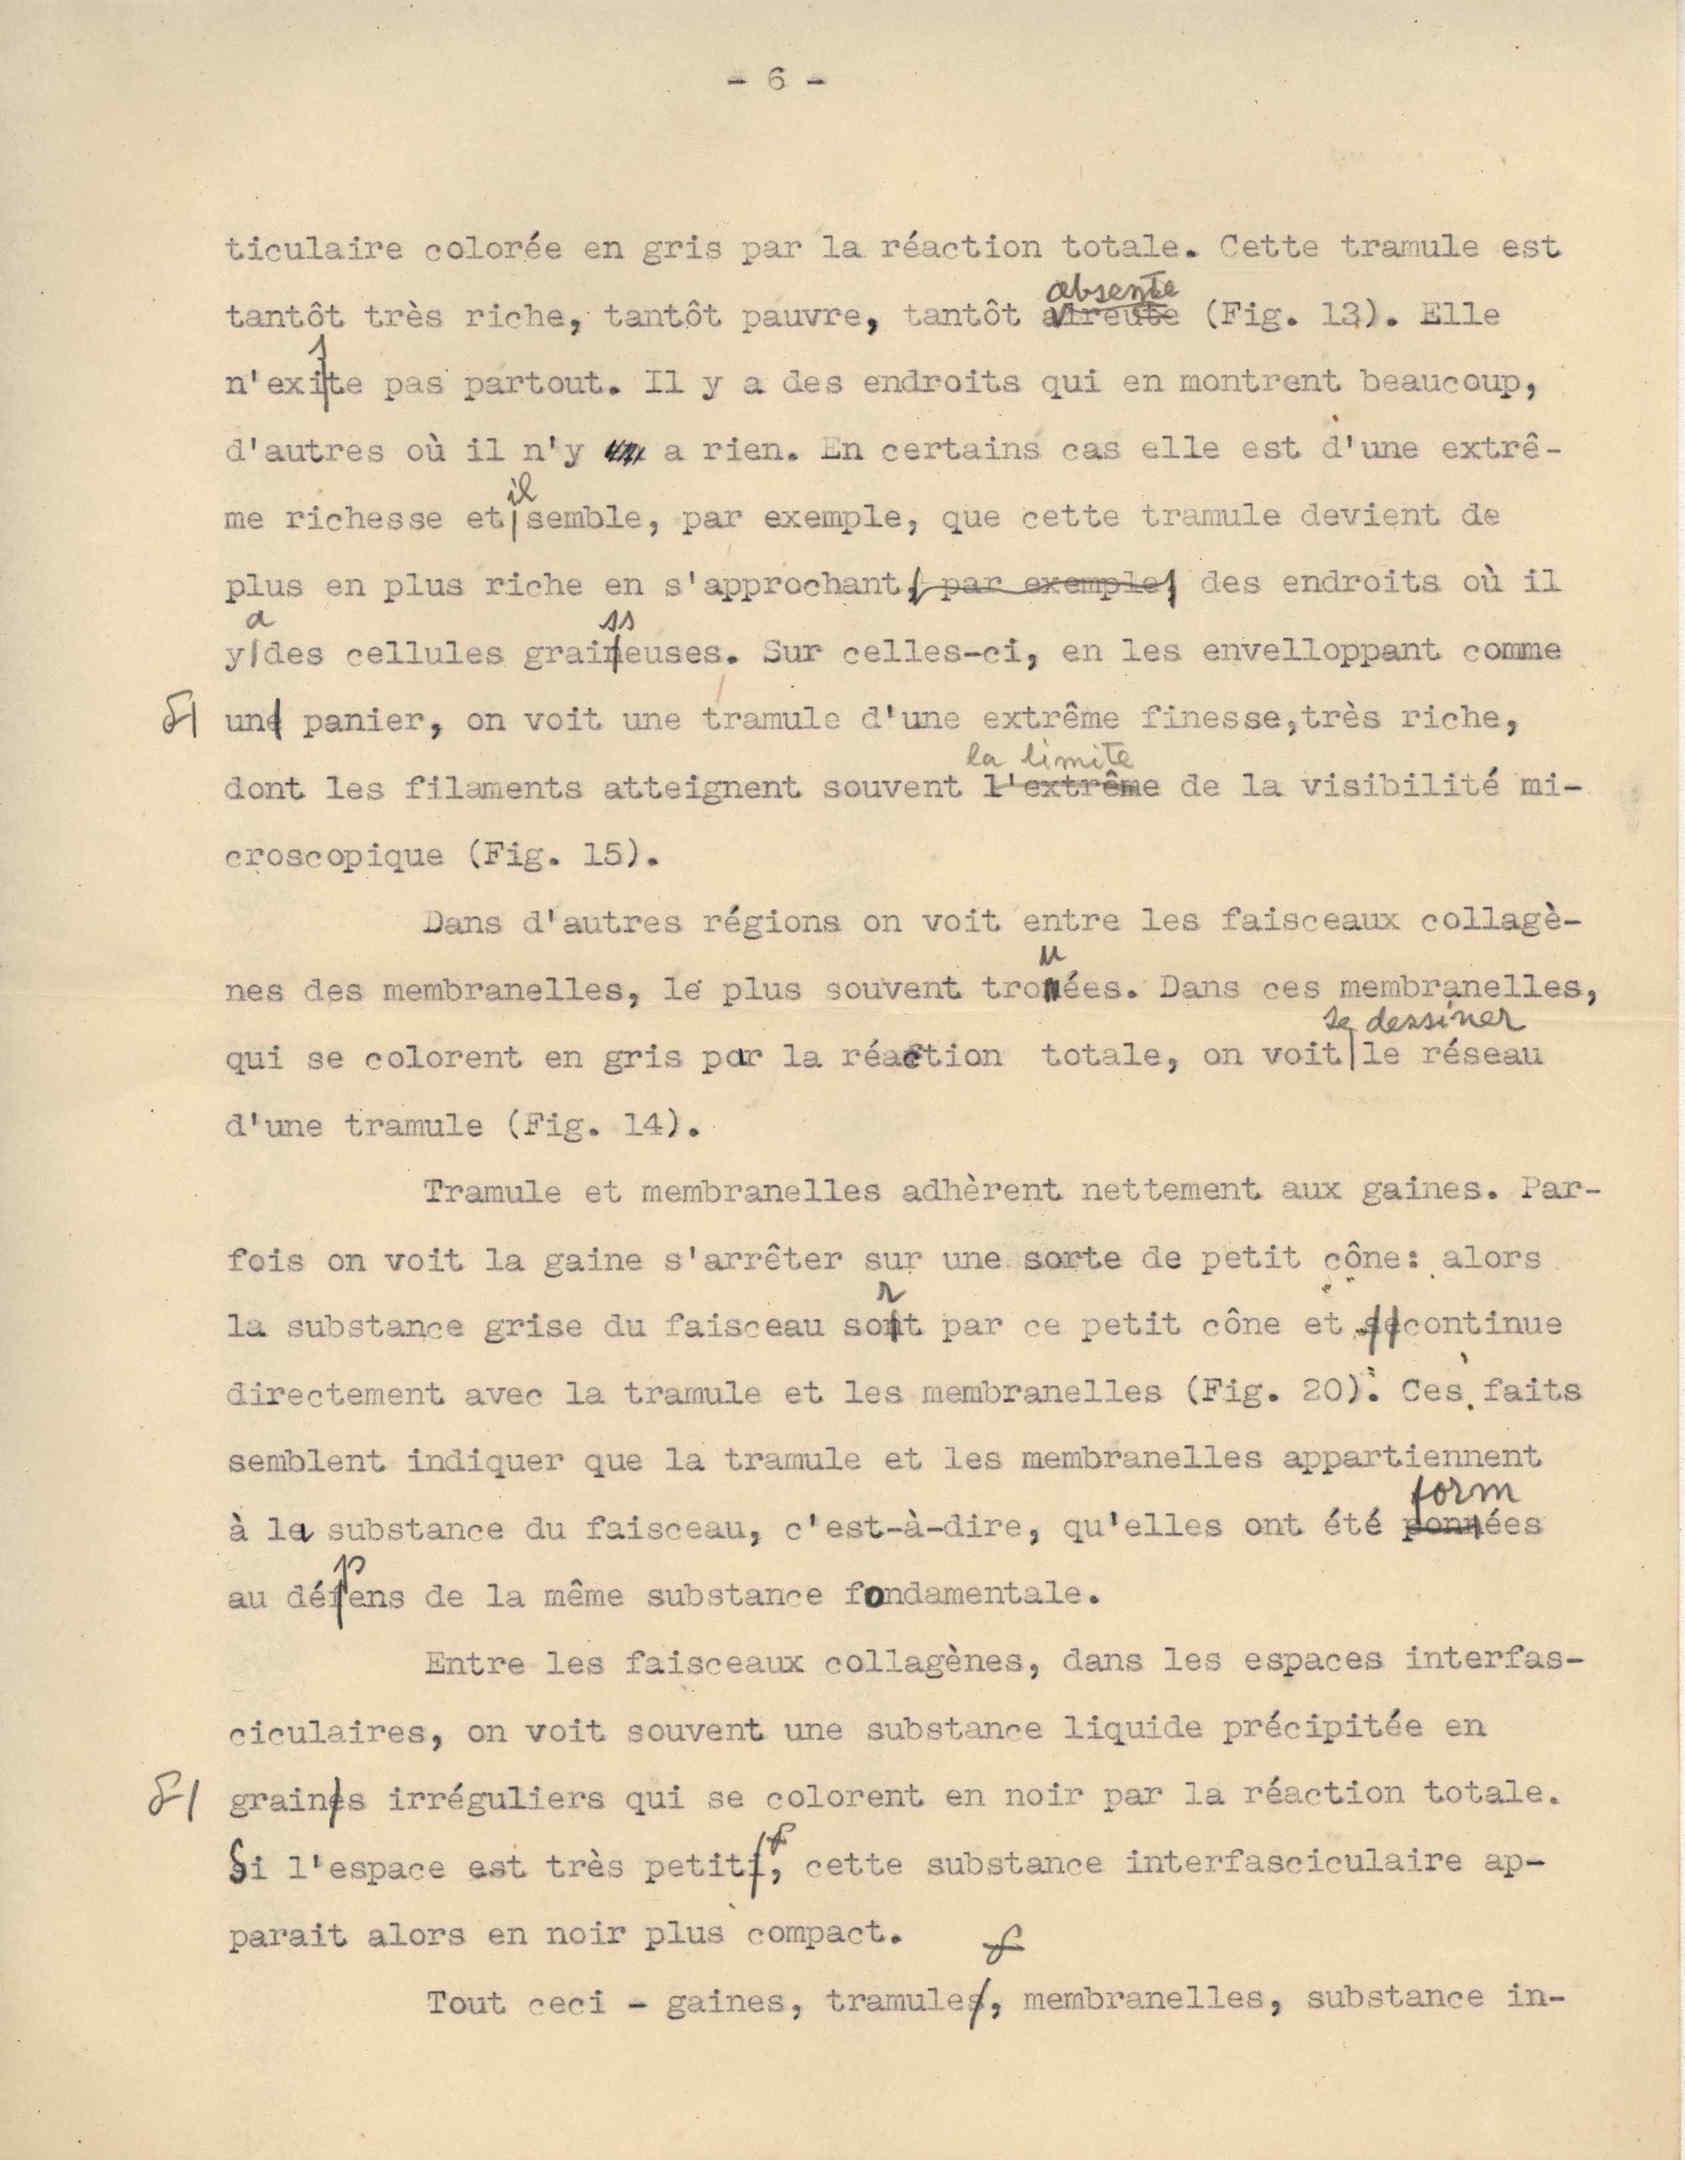 - 6 -
ticulaire colorée en gris par la réaction totale. Cette tramule est
absente
tantôt très riche, tantôt pauvre, tantôt (Fig. 13). Elle
s
n'exite pas partout. Il y a des endroits qui en montrent beaucoup,
d'autres où il n'y a rien. En certains cas elle est d'une extrê-
il
me richesse et semble, par exemple, que cette tramule devient de
plus en plus riche en s'approchant, par exemple, des endroits où il
a ss
y des cellules graineuses. Sur celles-ci, en les envelloppant comme
une panier, on voit une tramule d'une extrême finesse,très riche,
la limite
dont les filaments atteignent souvent l'extrême de la visibilité mi-
croscopique (Fig. 15).
Dans d'autres régions on voit entre les faisceaux collagè-
u
nes des membranelles, le plus souvent tronées. Dans ces membranelles,
se dessiner
qui se colorent en gris par la réaction totale, on voit le réseau
d'une tramule (Fig. 14).
Tramule et membranelles adhèrent nettement aux gaines. Par-
fois on voit la gaine s'arrêter sur une sorte de petit cône: alors
r
la substance grise du faisceau sont par ce petit cône et se continue
directement avec la tramule et les membranelles (Fig. 20). Ces faits
semblent indiquer que la tramule et les membranelles appartiennent
form
à la substance du faisceau, c'est-à-dire, qu'elles ont été données
p
au défens de la même substance fondamentale.
Entre les faisceaux collagènes, dans les espaces interfas-
ciculaires, on voit souvent une substance liquide précipitée en
graines irréguliers qui se colorent en noir par la réaction totale.
Si l'espace est très petit, cette substance interfasciculaire ap-
parait alors en noir plus compact.
Tout ceci - gaines, tramules, membranelles, substance in-